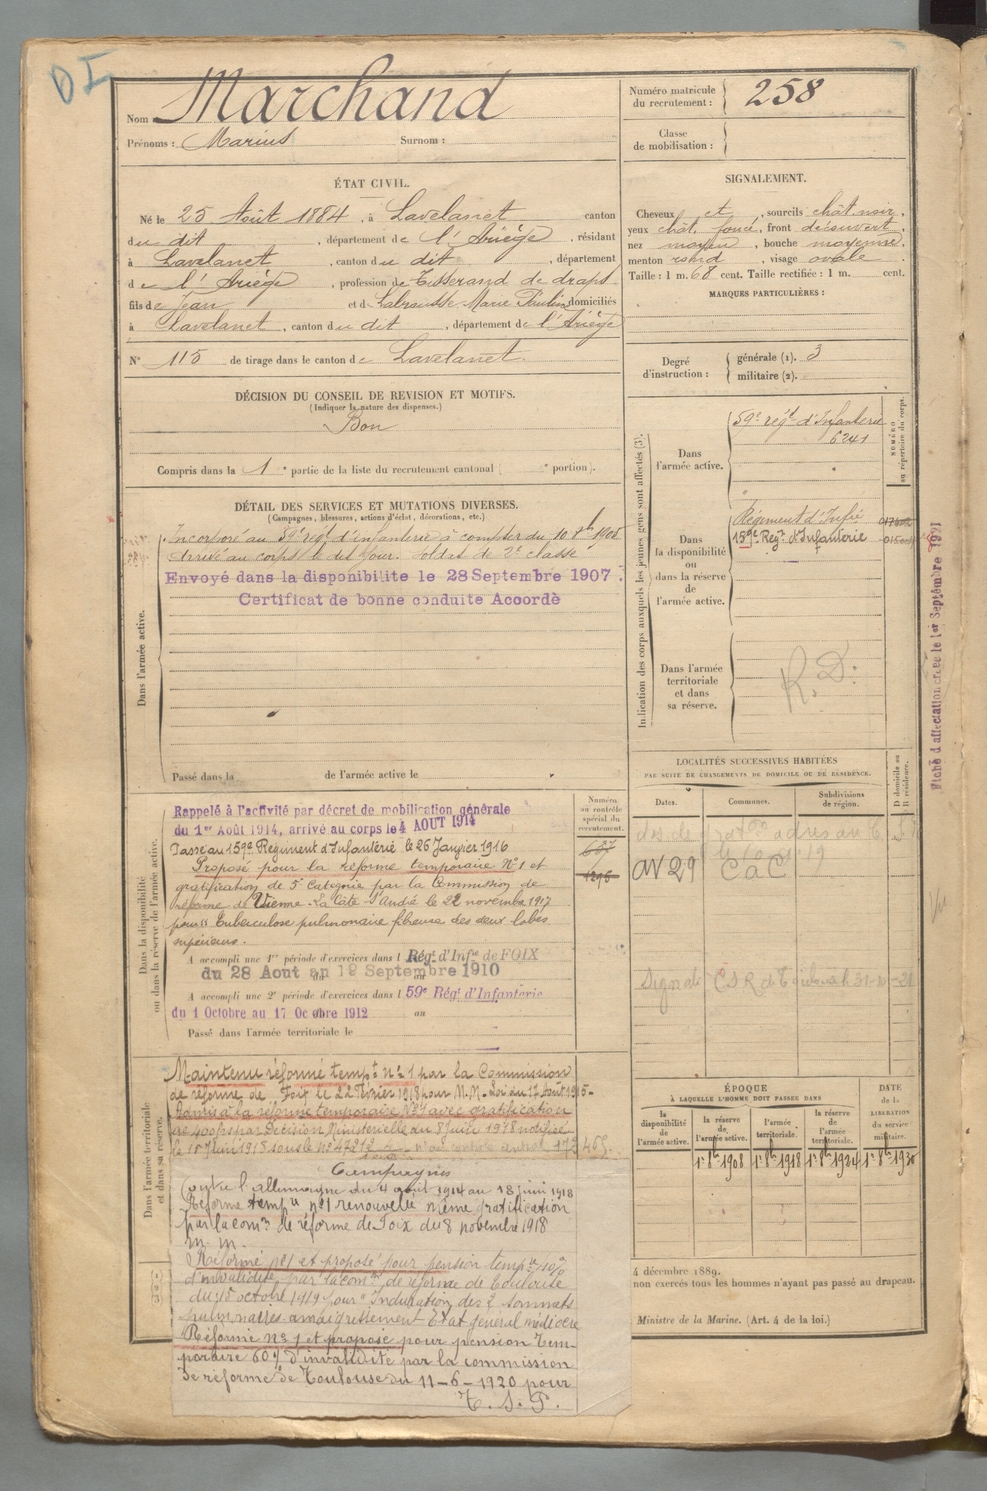 DI
Nom : Marchand
Prénoms : Marius Surnom :
Numéro matricule du recrutement : 258
Classe de mobilisation :
ÉTAT CIVIL.
Né le 25 Août 1884, à Lavelanet canton
du dit, département de l'Ariège, résidant
à Lavelanet, canton du dit, département
de l'Ariège, profession de Tisserand de draps
fils de Jean et de Marie domiciliés
à Lavelanet, canton du dit, département de l'Ariège
N° 115 de tirage dans le canton de Lavelanet.
SIGNALEMENT.
Cheveux et, sourcils chât noir,
yeux chât. foncé, front découvert,
nez moyen, bouche moyenne,
menton rond, visage ovale.
Taille : 1 m. 68 cent. Taille rectifiée : 1 m. cent.
MARQUES PARTICULIÈRES :
Degré d'instruction : générale (1). 3
militaire (2).
DÉCISION DU CONSEIL DE REVISION ET MOTIFS.
(Indiquer la nature des dispenses.)
Bon
Compris dans la 1e partie de la liste du recrutement cantonal ( e portion).
DÉTAIL DES SERVICES ET MUTATIONS DIVERSES.
(Campagnes, blessures, actions d'éclat, décorations, etc.)
Dans l'armée active.
Incorporé au 59e régt d'infanterie à compter du 10 8bre
Arrivé au corps le dit jour. soldat de 2e classe
Envoyé dans la disponibilite le 28 Septembre 1907.
Certificat de bonne conduite Accordé
Passé dans la de l'armée active le
Indication des corps auxquels les jeunes gens sont affectés (3).
NUMÉRO au répertoire du corps.
Dans l'armée active.
59e régt d'Infanterie
6241
Dans la disponibilité ou dans la réserve de l'armée active.
Régiment d'Infie
159e Regt d'Infanterie
Dans l'armée territoriale et dans sa réserve.
R. D.
Fiche d'affectation créée le 1er Septembre
LOCALITÉS SUCCESSIVES HABITÉES
PAR SUITE DE CHANGEMENTS DE DOMICILE OU DE RÉSIDENCE.
Dates. Communes. Subdivisions de région. D domicile ou R résidence.
AV 29 CaC
Dans la disponibilité ou dans la réserve de l'armée active.
Numéro au contrôle spécial du recrutement.
Rappelé à l'activité par décret de mobilisation générale
du 1er Août 1914, arrivé au corps le 4 AOUT 1914
Passé au 159e Régiment d'Infanterie le 26 Janvier 1916
Proposé pour la réforme temporaire N°1 et
gratification de 5e Catégorie par la Commission de
réforme de Vienne - La Côte St André le 22 novembre 1917
pour "Tuberculose pulmonaire fibreuse des deux lobes
supérieurs.
A accompli une 1re période d'exercices dans l Régt d'Infie de FOIX
du 28 Aout au 19 Septembre 1910
A accompli une 2e période d'exercices dans l 59e Régt d'Infanterie
du 1 Octobre au 17 Octobre 1912 au
Passé dans l'armée territoriale le
Dans l'armée territoriale et dans sa réserve.
Maintenu réformé tempre n° 1 par la Commission
de réforme de Foix le 22 Février 1918 pour M.M. Loi du 17 Août 1915-
Admis à la réforme temporaire N°1 avec gratification
par Décision Ministérielle du 8 Juin 1918 notifiée
Campagnes
Contre l'allemagne du 4 août 1914 au 18 juin 1918
Réforme tempre n°1 renouvelée même gratification
par la comon de réforme de Foix du 8 novembre 1918
m. m.
Réformé n°1 et proposé pour pension tempre 10%
d'invalidité par la comon de réforme de Toulouse
du 15 octobre 1919 pour "Induration des 2 sommets
pulmonaires amaigrissement Etat général médiocre
Réformé n° 1 et proposé pour pension Tem-
poraire 60% d'invalidité par la commission
de réforme de Toulouse du 11-6-1920 pour
T. S. P.
ÉPOQUE
À LAQUELLE L'HOMME DOIT PASSER DANS
la disponibilité de l'armée active. la réserve de l'armée active. l'armée territoriale. la réserve de l'armée territoriale.
DATE de la LIBÉRATION du service militaire.
1er 8bre 1908 1er 8bre 1918 1er 8bre 1924 1er 8bre 1930
4 décembre 1889.
non exercés tous les hommes n'ayant pas passé au drapeau.
Ministre de la Marine. (Art. 4 de la loi.)